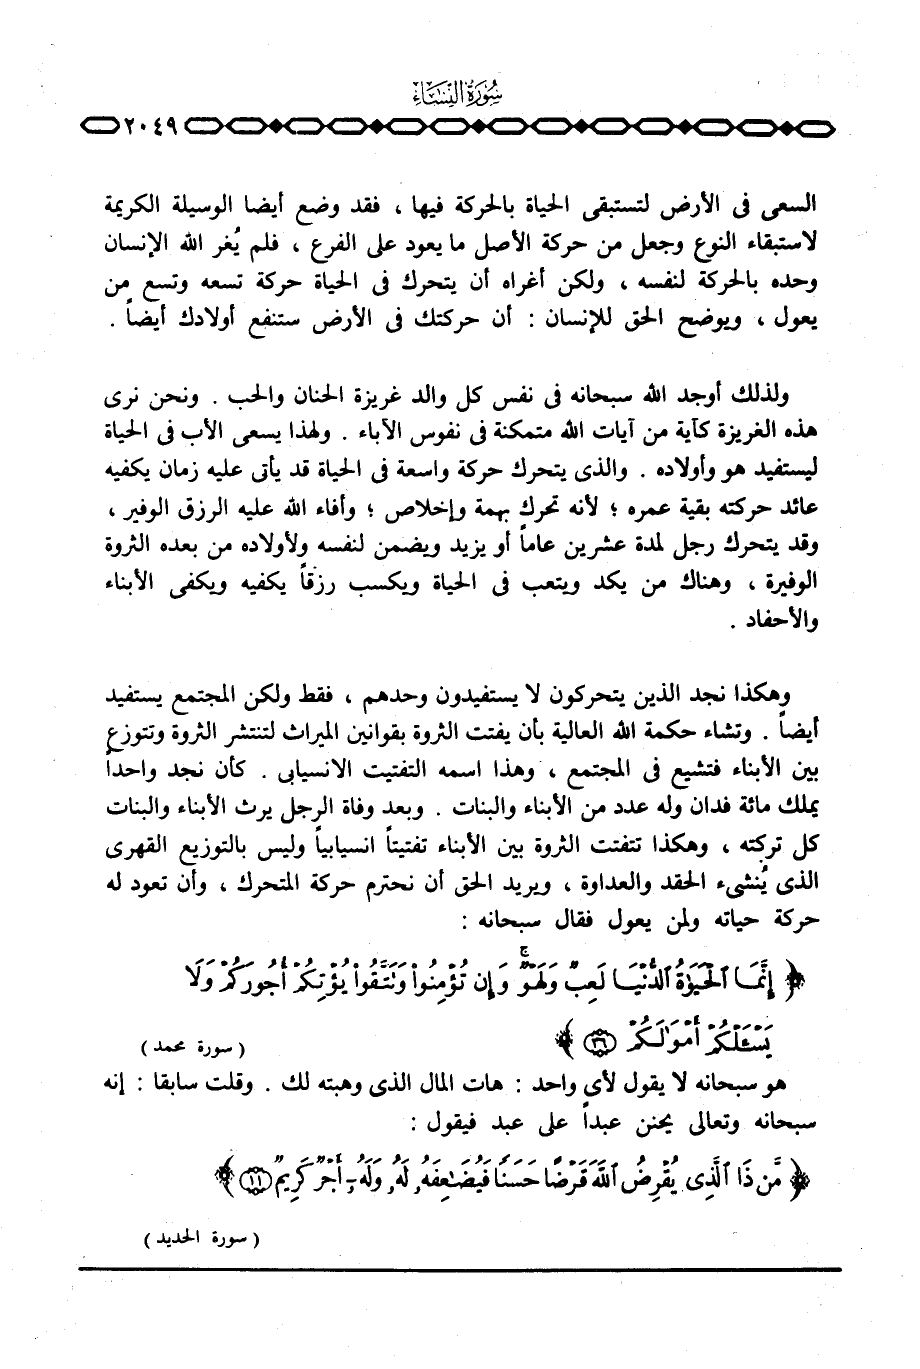 سورة النساء
٢٠٤٩
السعى فى الأرض لتستبقى الحياة بالحركة فيها ، فقد وضع أيضا الوسيلة الكريمة
لاستبقاء النوع وجعل من حركة الأصل ما يعود على الفرع ، فلم يُغر الله الإنسان
وحده بالحركة لنفسه ، ولكن أغراه أن يتحرك فى الحياة حركة تسعه وتسع من
يعول ، ويوضح الحق للإنسان : أن حركتك فى الأرض ستنفع أولادك أيضاً .
ولذلك أوجد الله سبحانه فى نفس كل والد غريزة الحنان والحب . ونحن نرى
هذه الغريزة كآية من آيات الله متمكنة فى نفوس الآباء . ولهذا يسعى الأب فى الحياة
ليستفيد هو وأولاده . والذى يتحرك حركة واسعة فى الحياة قد يأتى عليه زمان يكفيه
عائد حركته بقية عمره ؛ لأنه تحرك بهمة وإخلاص ؛ وأفاء الله عليه الرزق الوفير ،
وقد يتحرك رجل لمدة عشرين عاماً أو يزيد ويضمن لنفسه ولأولاده من بعده الثروة
الوفيرة ، وهناك من يكد ويتعب فى الحياة ويكسب رزقاً يكفيه ويكفى الأبناء
والأحفاد .
وهكذا نجد الذين يتحركون لا يستفيدون وحدهم ، فقط ولكن المجتمع يستفيد
أيضاً . وتشاء حكمة الله العالية بأن يفتت الثروة بقوانين الميراث لتنتشر الثروة وتتوزع
بين الأبناء فتشيع فى المجتمع ، وهذا اسمه التفتيت الانسيابى . كأن نجد واحداً
يملك مائة فدان وله عدد من الأبناء والبنات . وبعد وفاة الرجل يرث الأبناء والبنات
كل تركته ، وهكذا تتفتت الثروة بين الأبناء تفتيتاً انسيابياً وليس بالتوزيع القهرى
الذى يُنشىء الحقد والعداوة ، ويريد الحق أن نحترم حركة المتحرك ، وأن تعود له
حركة حياته ولمن يعول فقال سبحانه :
﴿ إِنَّمَا ٱلْحَيَوٰةُ ٱلدُّنْيَا لَعِبٌ وَلَهْوٌ ۚ وَإِن تُؤْمِنُوا۟ وَتَتَّقُوا۟ يُؤْتِكُمْ أُجُورَكُمْ وَلَا
يَسْـَٔلْكُمْ أَمْوَٰلَكُمْ ٣٦ ﴾
( سورة محمد )
هو سبحانه لا يقول لأى واحد : هات المال الذى وهبته لك . وقلت سابقا : إنه
سبحانه وتعالى يحنن عبداً على عبد فيقول :
﴿ مَّن ذَا ٱلَّذِى يُقْرِضُ ٱللَّهَ قَرْضًا حَسَنًا فَيُضَٰعِفَهُۥ لَهُۥ وَلَهُۥٓ أَجْرٌ كَرِيمٌ ١١ ﴾
( سورة الحديد )